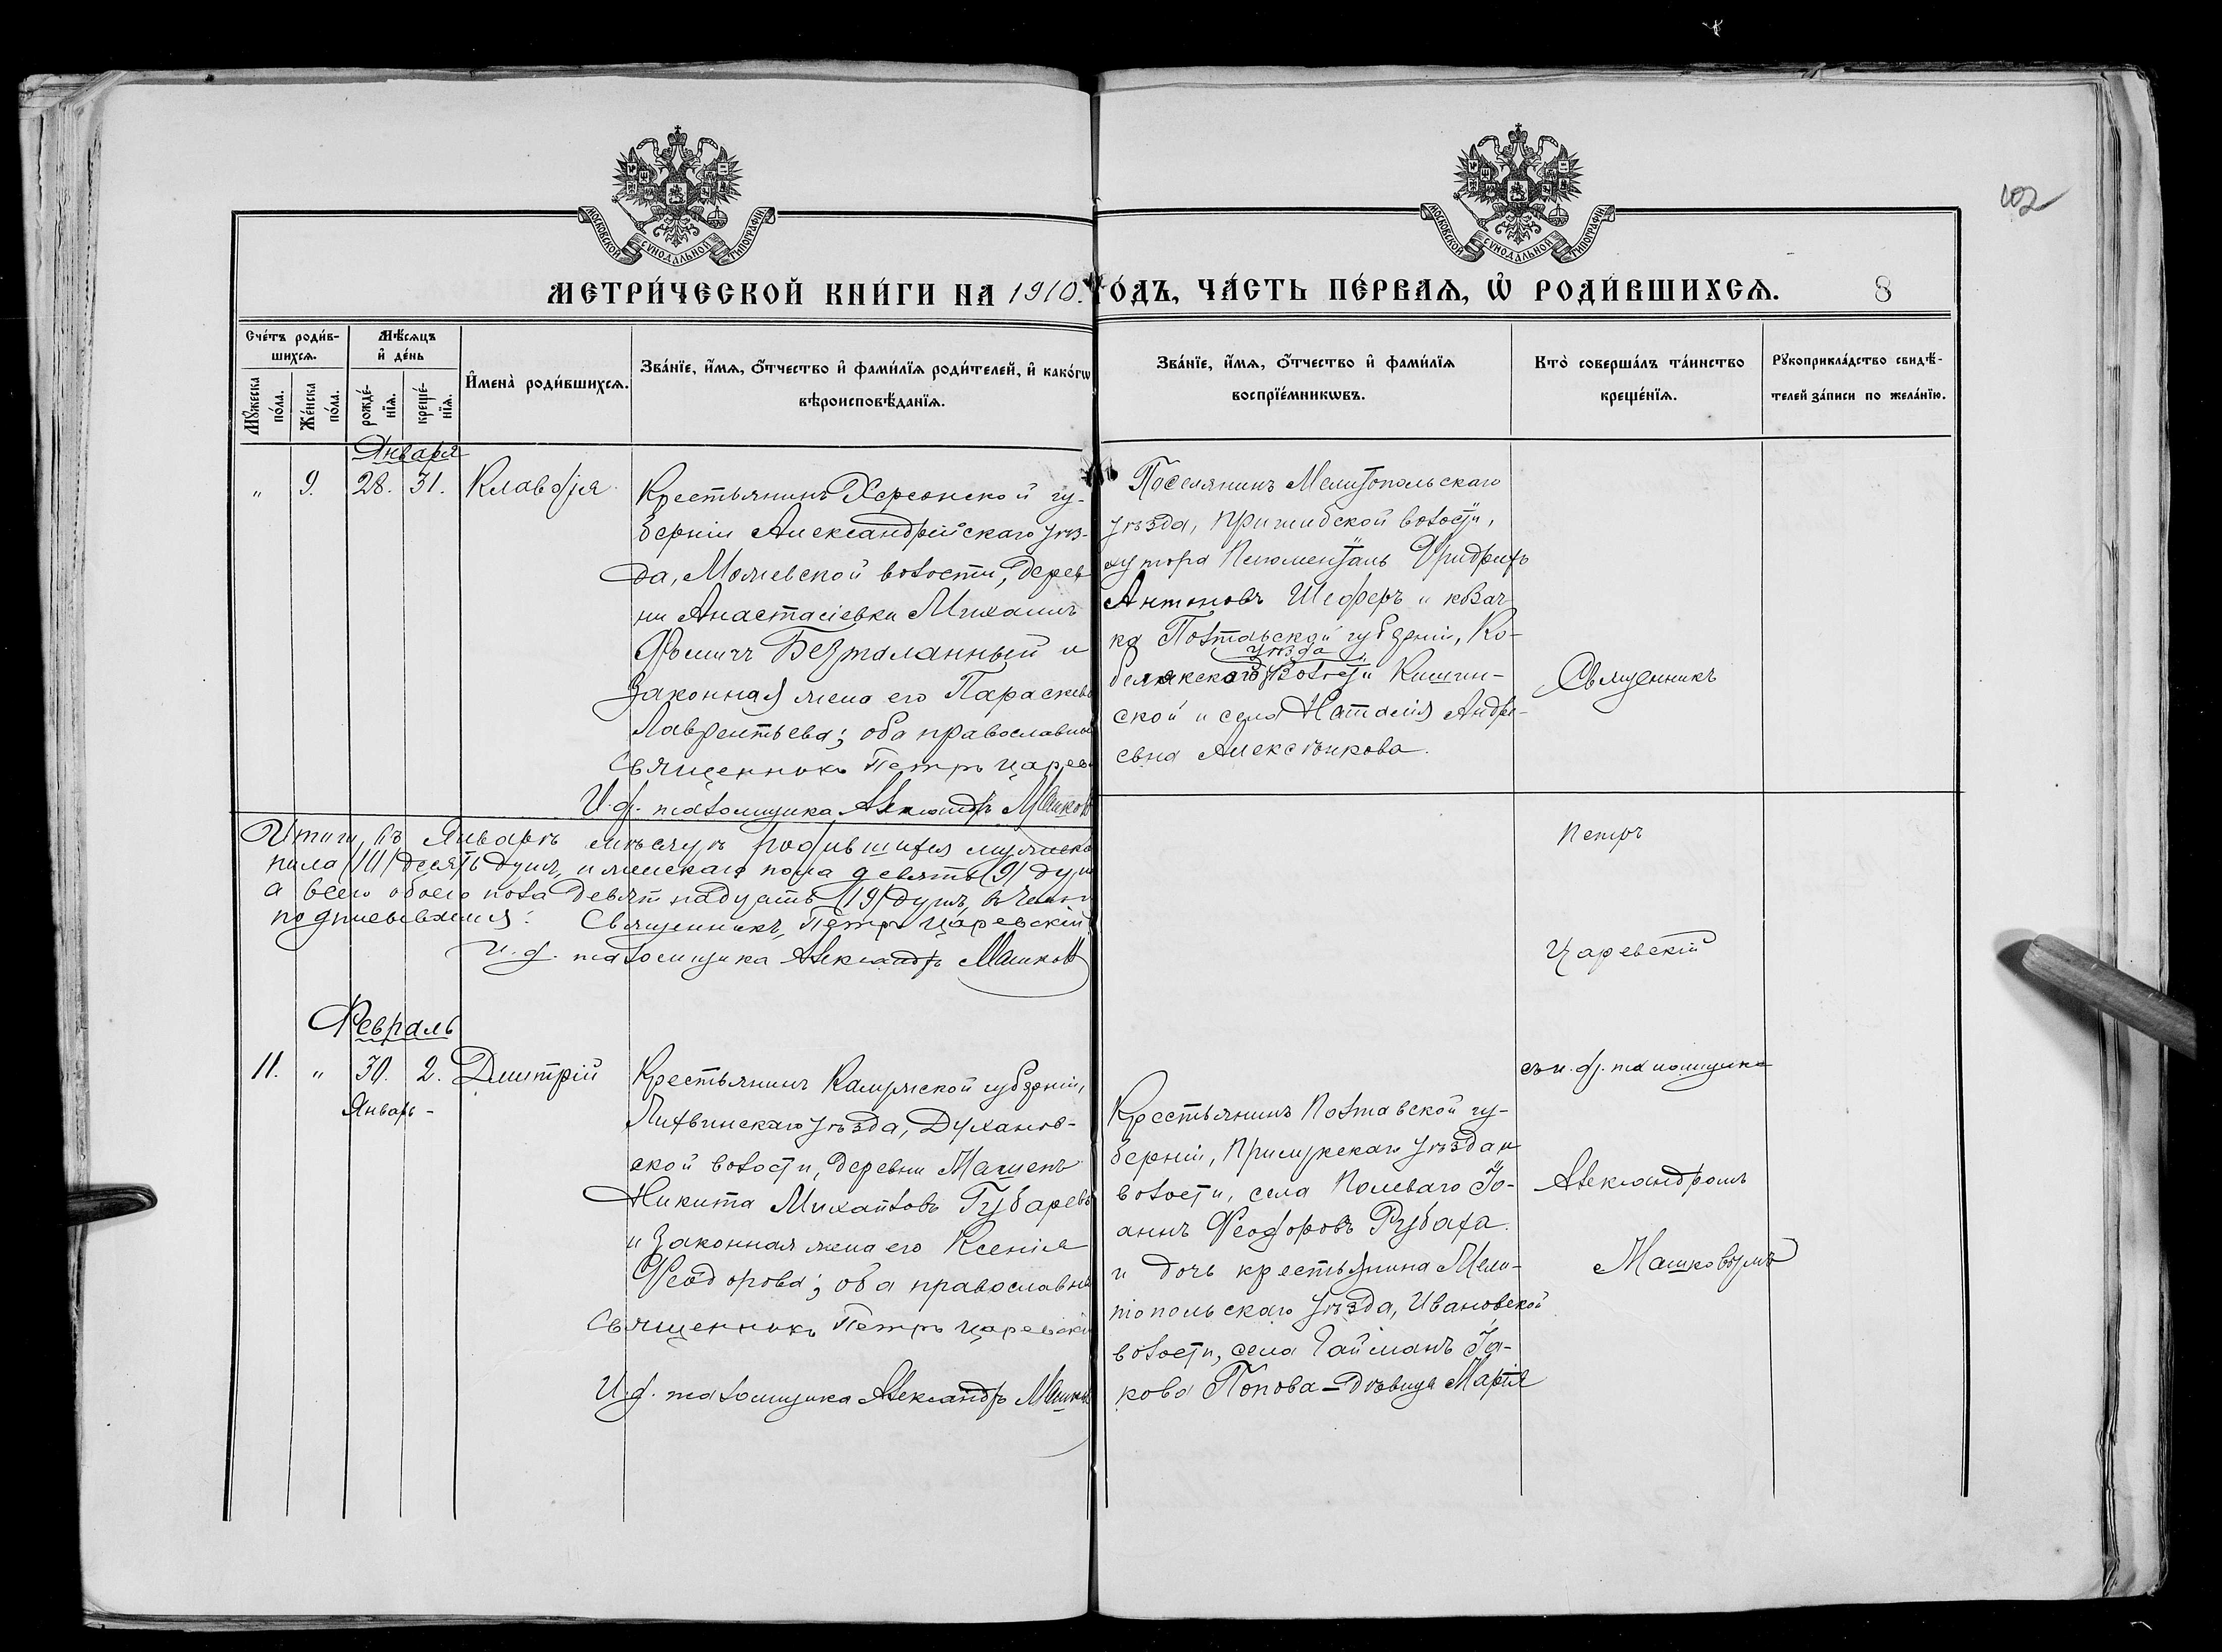 102
МОСКОВСКОЙ СУНОДАЛЬНОЙ ТИПОГРАФІИ
МОСКОВСКОЙ СУНОДАЛЬНОЙ ТИПОГРАФІИ
МЕТРИ́ЧЕСКОЙ КНИ́ГИ НА 1910. ГО́ДЪ, ЧА́СТЬ ПЕ́РВАѦ, Ѡ҆ РОДИ́ВШИХСѦ. 8
Сче́тъ роди́в-
шихсѧ.
Мꙋ́жеска по́ла.
Же́нска по́ла.
Мѣ́сѧцъ
и҆ де́нь
рожде́-
нїѧ.
креще́-
нїѧ.
И҆мена̀ роди́вшихсѧ.
Зва́нїе, и҆́мѧ, ѻ҆́тчество и҆ фами́лїѧ роди́телей, и҆ како́гѡ
вѣроисповѣ́данїѧ.
Зва́нїе, и҆́мѧ, ѻ҆́тчество и҆ фами́лїѧ
воспрїе́мникѡвъ.
Кто̀ соверша́лъ та́инство
креще́нїѧ.
Рꙋкоприкла́дство свидѣ́-
телей за́писи по жела́нїю.
Января
" 9. 28. 31. Клавдія
Крестьянинъ Херсонской гу-
берніи Александрійскаго уѣз-
да, волости, дерев
ни Анастасіевки Михаилъ
Ѳомичъ Безталанный и
законная жена его Параскева
Лаврентьева; оба православные
Священникъ Петръ Царев
И. д. псаломщика Александръ Машков
Поселянинъ Мелитопольскаго
уѣзда, Пришибской волости,
хутора Фридрихъ
Антоновъ Шеферъ и козач
ка Полтавской губерніи, Ко-
уѣзда
белякскаго волости Кишин-
ской и села Наталія Андре-
евна
Священникъ
Петръ
Царевскій
съ и. д. псаломщика
Александромъ
Машковымъ
Итого, въ Январѣ мѣсяцѣ родившихся мужеска
пола (10) десять душъ, и женскаго пола девять (9) душ
а всего обоего пола девятнадцать (19) душъ, въ чемъ и
подписываемся: Священникъ, Петръ Царевскій
И. д. псаломщика Александръ Машковъ
Февраль
11. " 30. 2. Дмитрій
Январь -
Крестьянинъ Калужской губерніи,
Лихвинскаго уѣзда, Духанов-
ской волости, деревни
Никита Михайловъ Губаревъ
и законная жена его Ксенія
Ѳеодорова; оба православные
Священникъ Петръ Царевскій
И. д. псаломщика Александръ Машков
Крестьянинъ Полтавской гу-
берніи, Прилукскаго уѣзда и
волости, села Полеваго Іо-
аннъ Ѳеодоровъ Рубаха.
и дочь крестьянина Мели-
топольскаго уѣзда, Ивановской
волости, села Гайманъ Іа-
кова Попова - дѣвица Марія